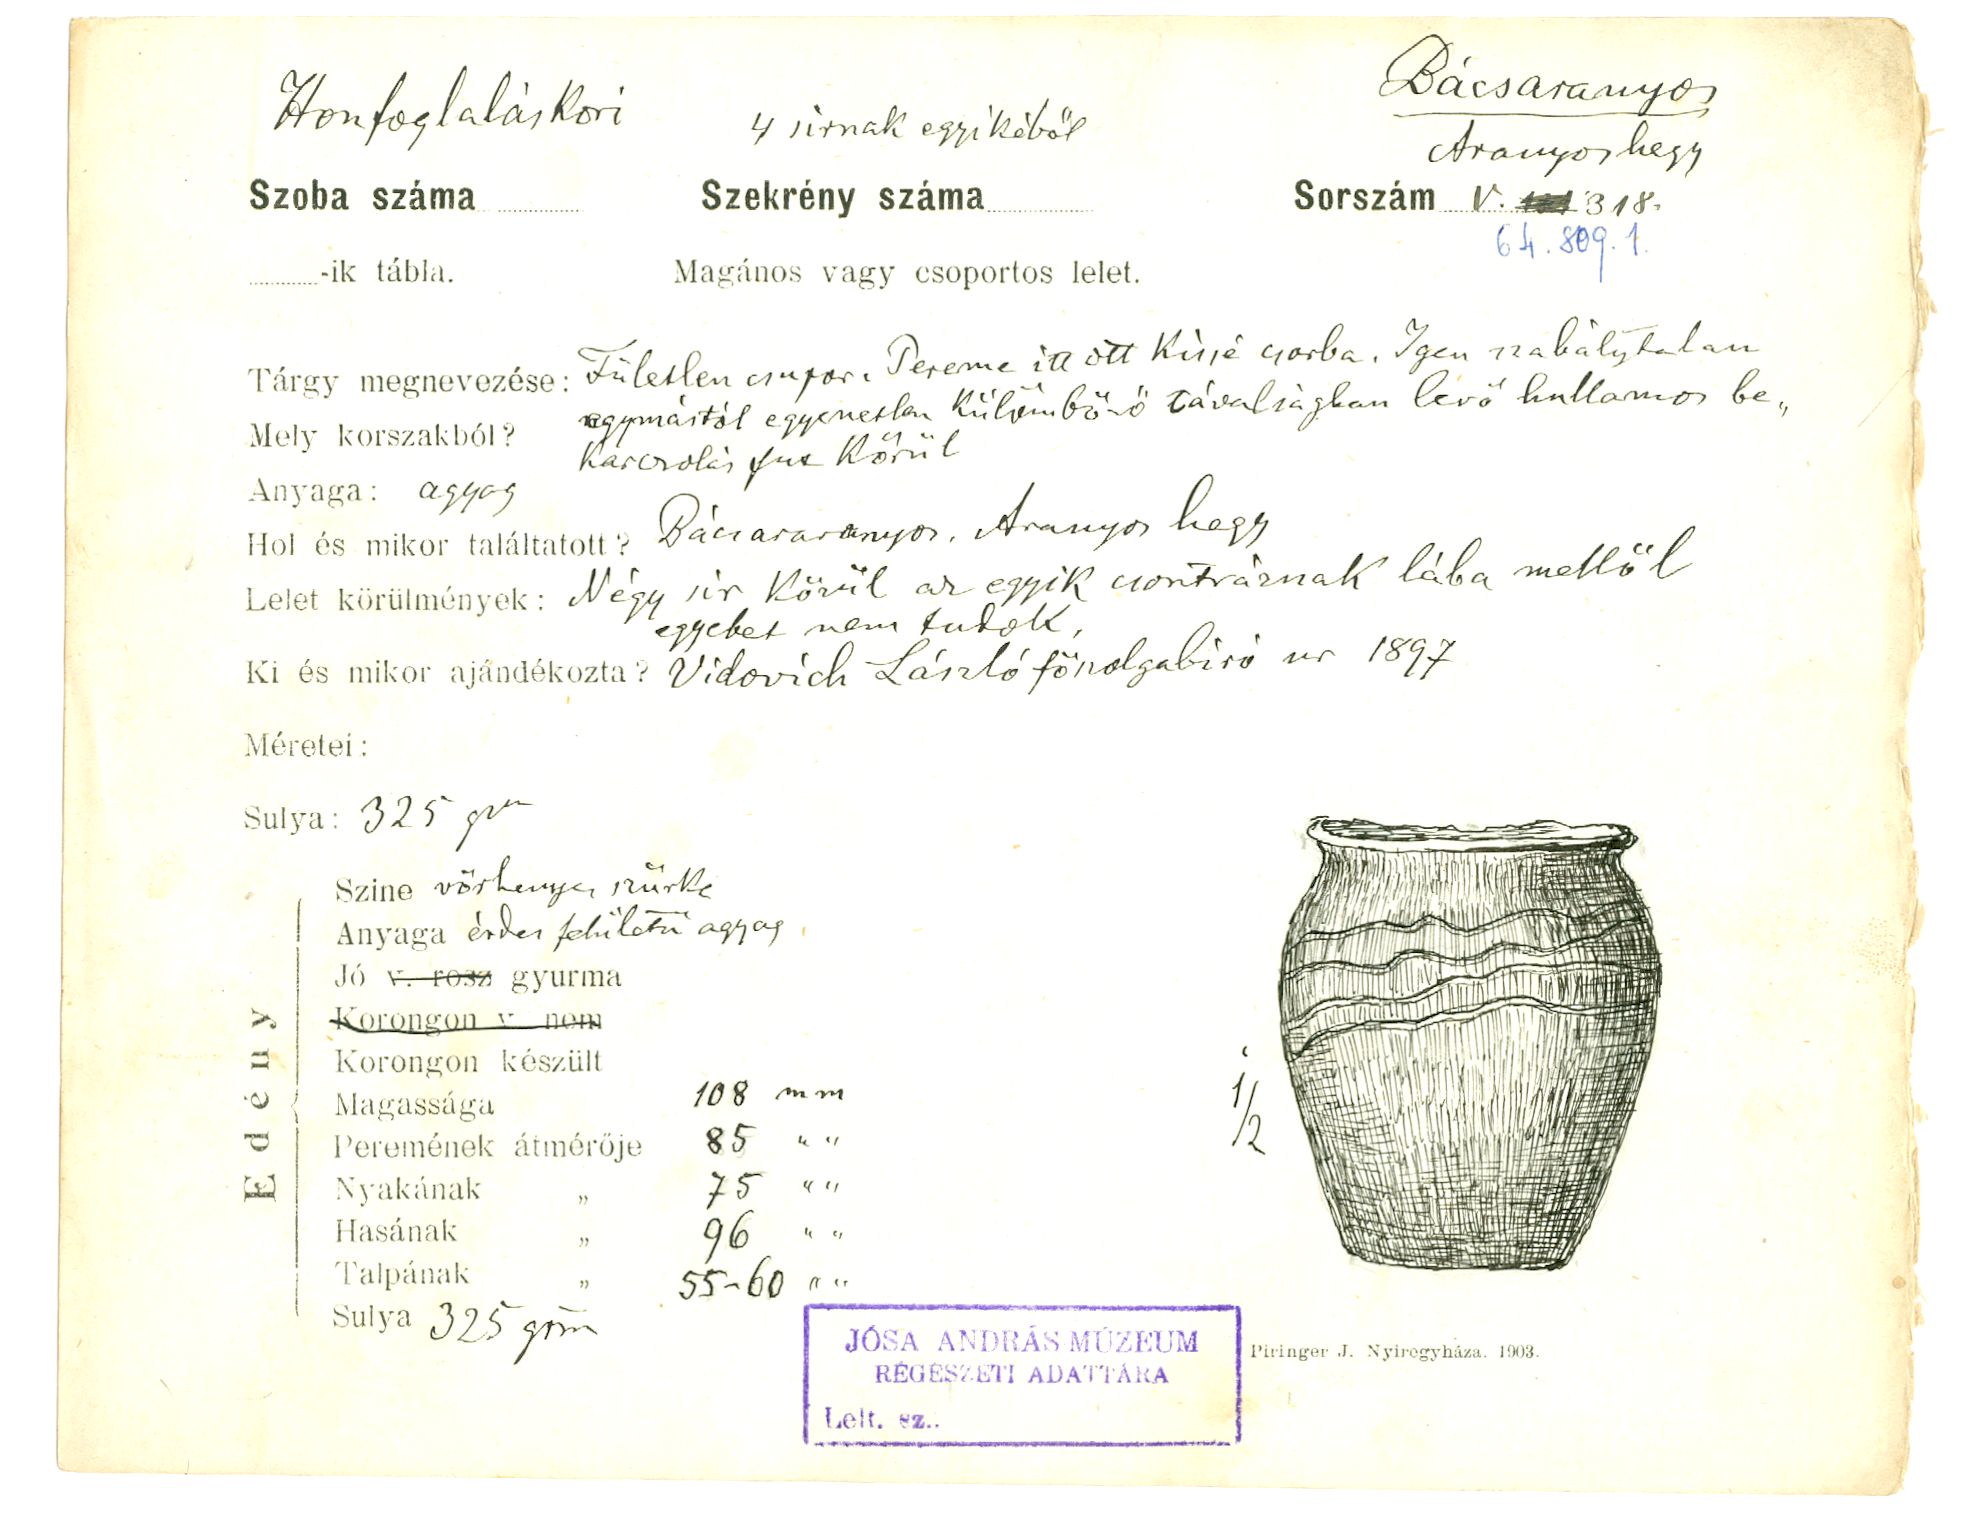 Honfogláláskori
4 sirnak egyikéből
Bácsaranyos
Aranyos hegy
Szoba száma
Szekrény száma
Sorszám V. 318.
64.809.1.
-ik tábla.
Magános vagy csoportos lelet.
Tárgy megnevezése: Fületlen csupor. Pereme itt ott kissé csorba. Igen szabálytalan
egymástól egyenetlen külömböző távolságban levő hullamos be„
Mely korszakból?
karczolás fut körül
Anyaga: agyag
Hol és mikor találtatott? Bácsararanyos, Aranyos hegy
Lelet körülmények: Négy sir körül az egyik csontváznak lába mellől
egyebet nem tudok,
Ki és mikor ajándékozta? Vidovich László főszolgabiró ur 1897
Méretei:
Sulya: 325 grm
Edény
Szine vörhenyes szürke
Anyaga érdes felületü agyag
Jó v. rosz gyurma
Korongon v. nem
Korongon készült
Magassága 108 mm
Peremének átmérője 85 " "
Nyakának „ 75 " "
Hasának „ 96 " "
Talpának „ 55-60 " "
Sulya 325 grm
1/2
JÓSA ANDRÁS MÚZEUM
RÉGÉSZETI ADATTÁRA
Lelt. sz..
Piringer J. Nyiregyháza. 1903.